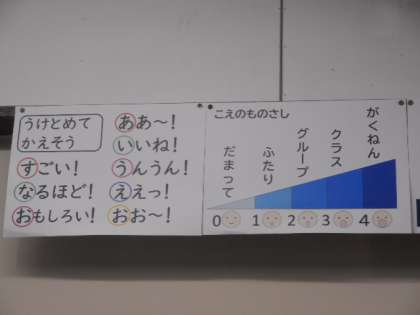 うけとめて
かえそう
すごい!
なるほど!
おもしろい!
ああ~!
いいね!
うんうん!
ええっ!
おお~!
こえのものさし
だまって
ふたり
グループ
クラス
がくねん
0 1 2 3 4